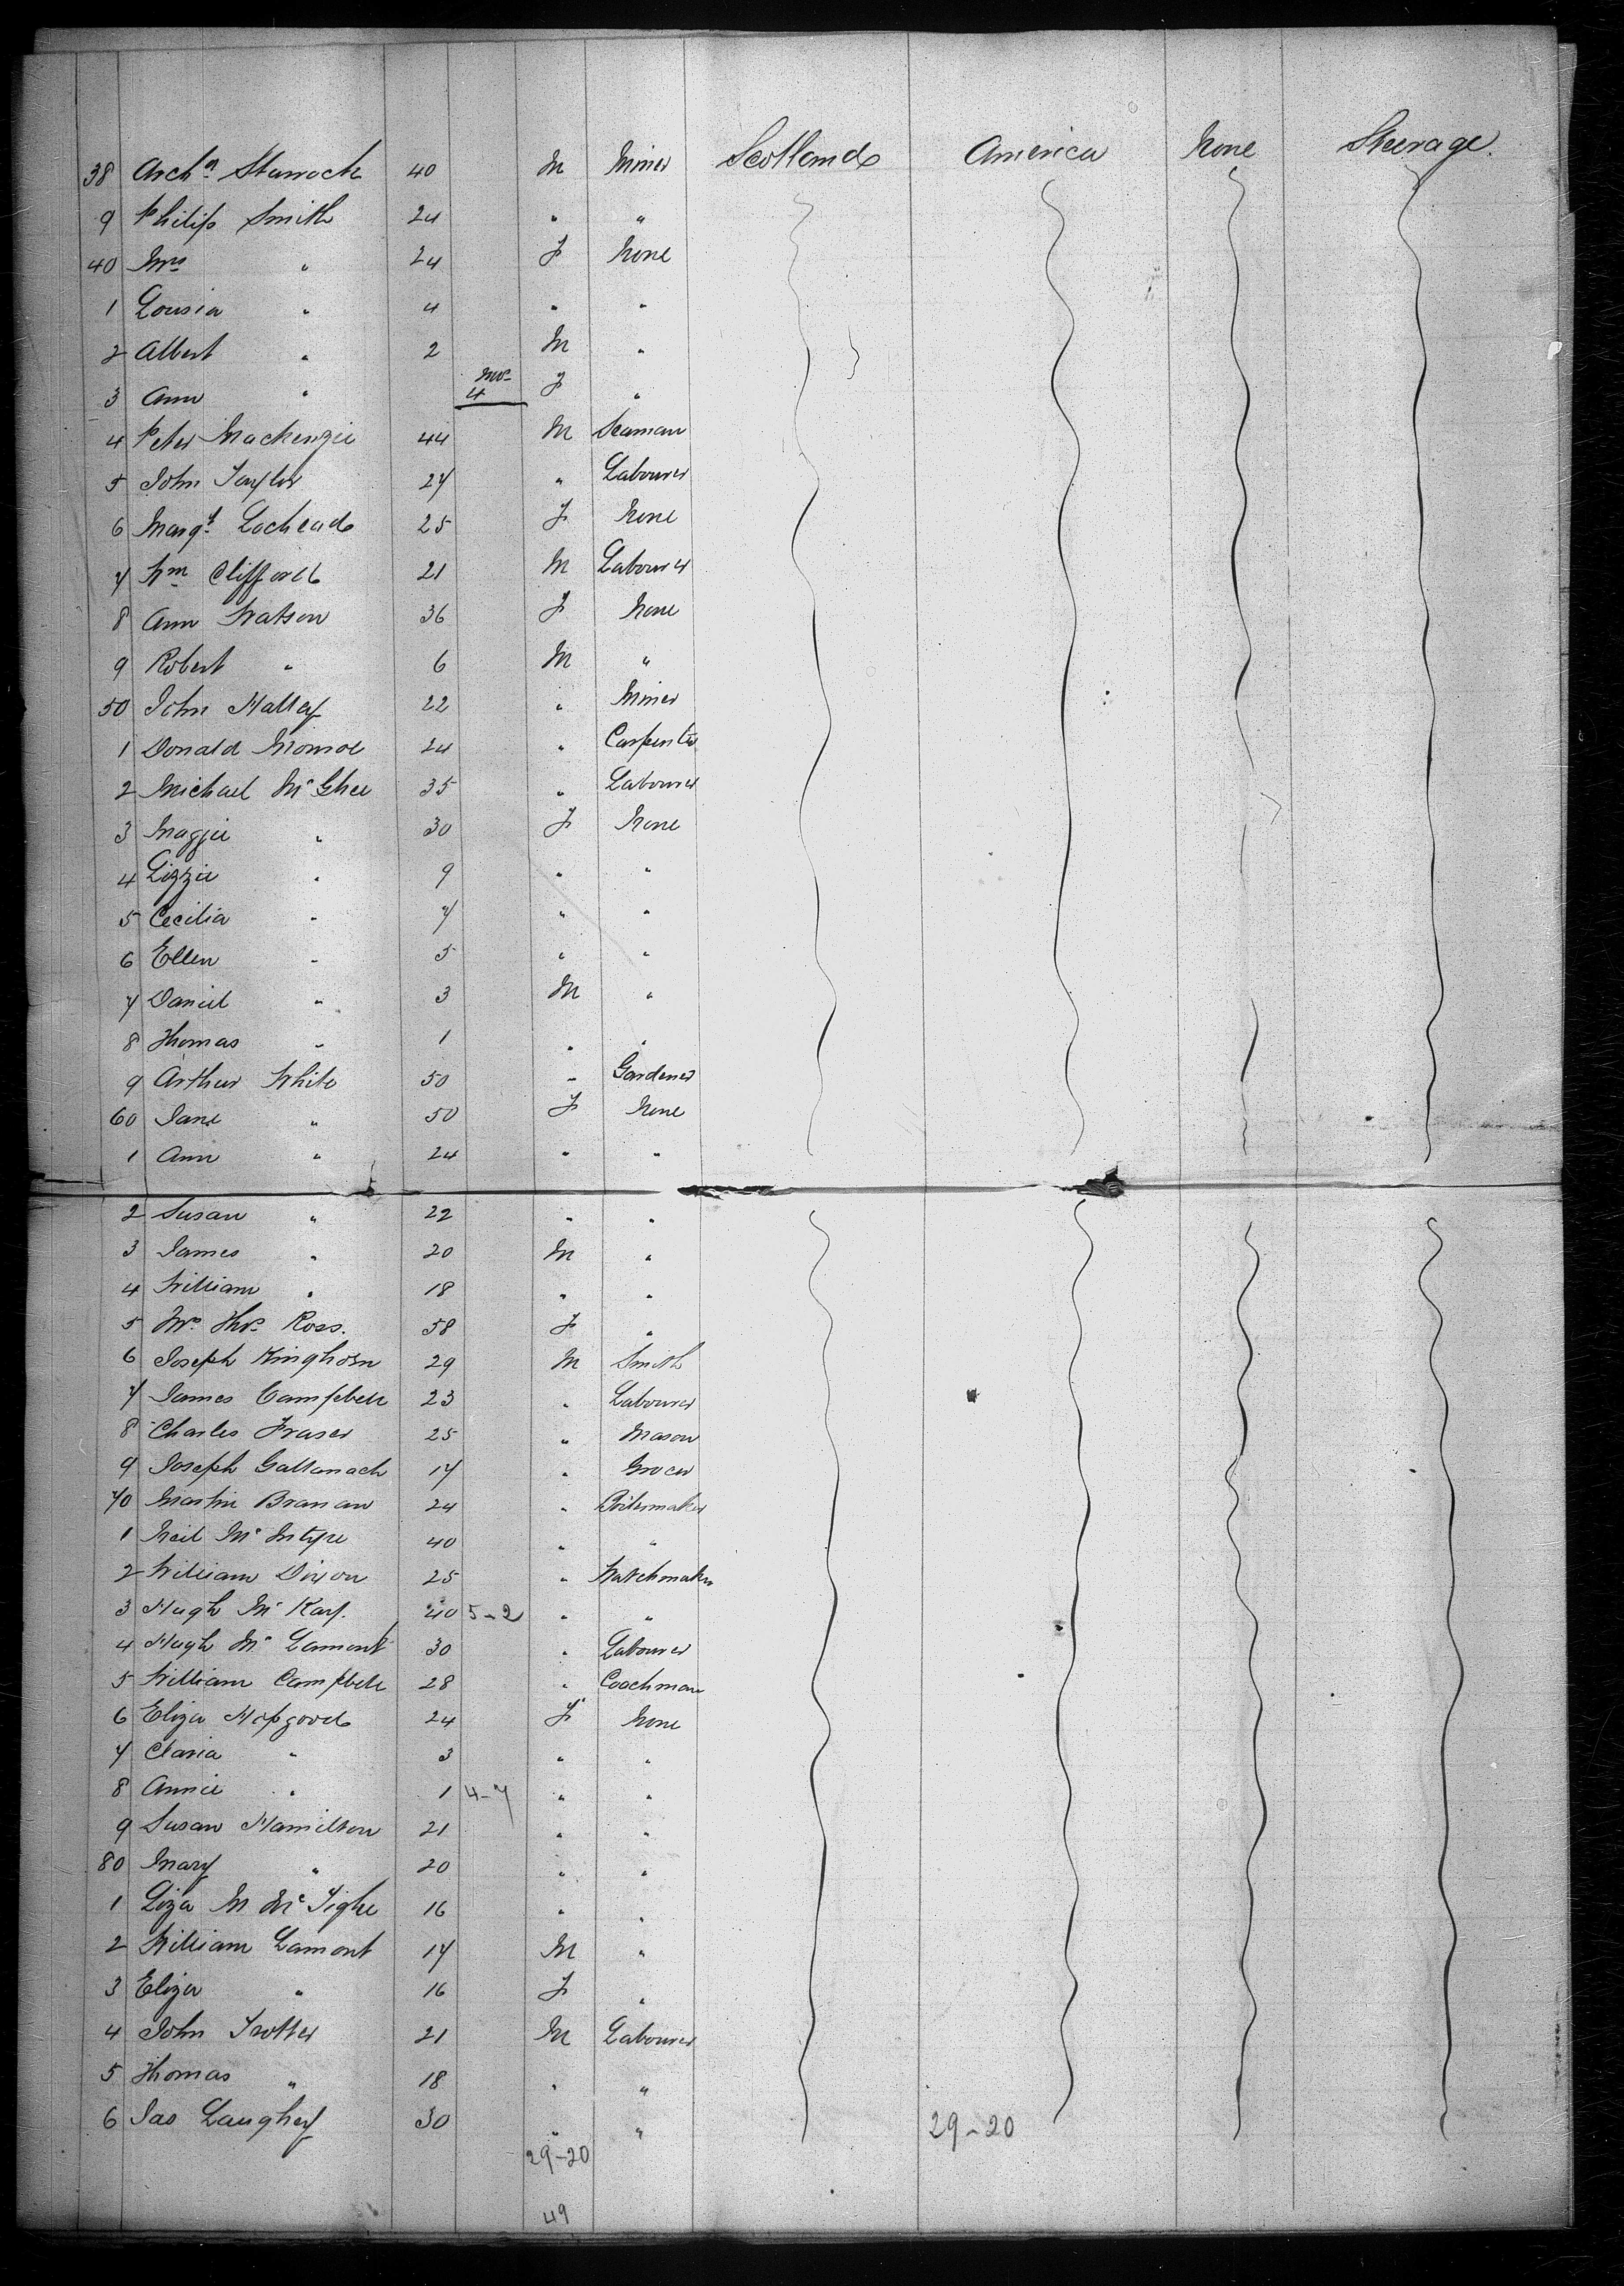 38 Archd Sturrock 40 M Miner Scotland America None Steerage
9 Philip Smith 24 " "
40 Mrs " 24 F None
1 Lousia " 4 " "
2 Albert " 2 M "
3 Ann " mos 4 F "
4 Peter Mackenzie 44 M Seaman
5 John Taylor 27 " Labourer
6 Margt Lochead 25 F None
7 Wm Clifford 21 M Labourer
8 Ann Watson 36 F None
9 Robert " 6 M "
50 John Halley 22 " Miner
1 Donald Monroe 24 " Carpenter
2 Michael McGhee 35 " Labourer
3 Maggie " 30 F None
4 Lizzie " 9 " "
5 Cecilia " 7 " "
6 Ellen " 5 " "
7 Daniel " 3 M "
8 Thomas " 1 " "
9 Arthur White 50 " Gardener
60 Jane " 50 F None
1 Ann " 24 " "
2 Susan " 22 " "
3 James " 20 M "
4 William " 18 " "
5 Mrs Thos Ross. 58 F "
6 Joseph Kinghorn 29 M Smith
7 James Campbell 23 " Labourer
8 Charles Fraser 25 " Mason
9 Joseph Gattanach 17 " Grocer
70 Martin Branan 24 " Boilermaker
1 Neil McIntyre 40 " "
2 William Dixon 25 " Watchmaker
3 Hugh McKay. 40 5-2 " "
4 Hugh McLamont 30 " Labourer
5 William Campbell 28 " Coachman
6 Eliza Hopgood 24 F None
7 Claria " 3 " "
8 Annie " 1 4-7 " "
9 Susan Hamilton 21 " "
80 Mary " 20 " "
1 Liza M McTighe 16 " "
2 William Lamont 17 M "
3 Eliza " 16 F "
4 John Trotter 21 M Labourer
5 Thomas " 18 " "
6 Jas Laughey 30 " "
29-20 29-20
49